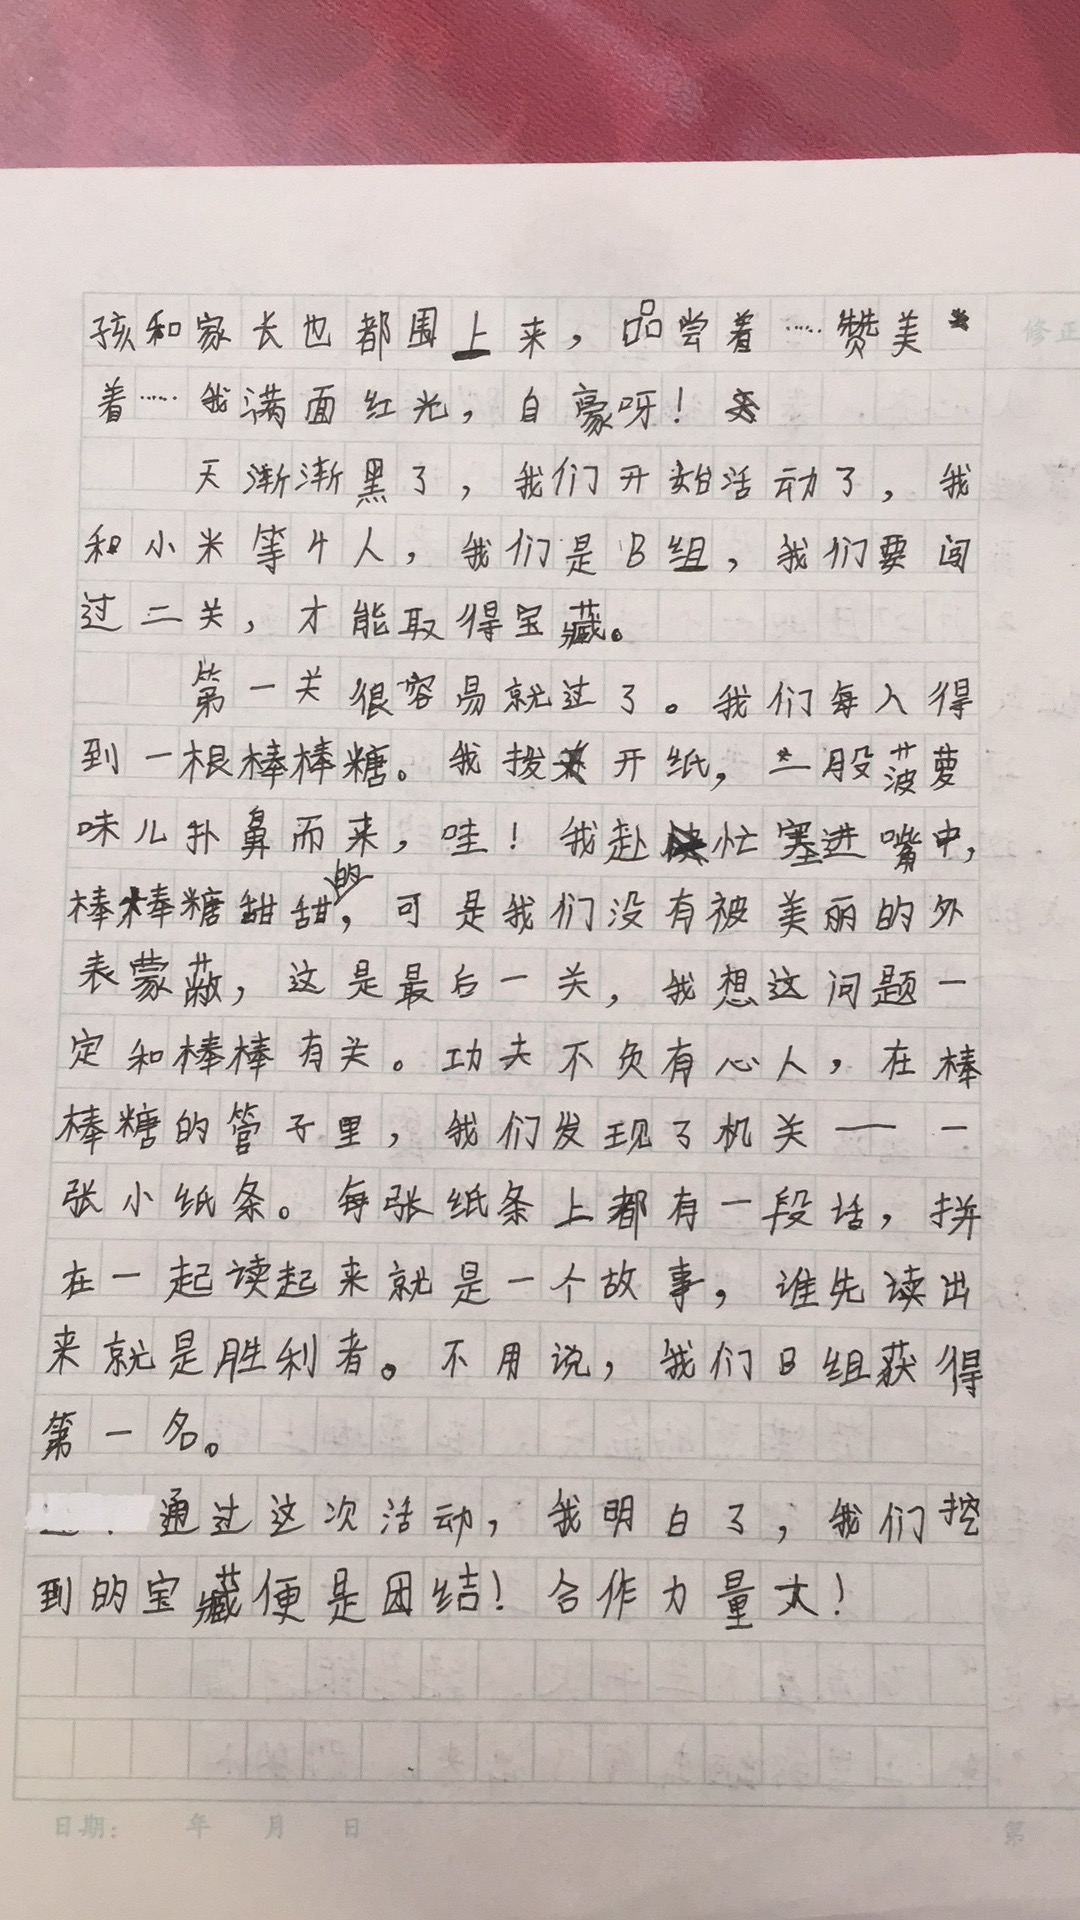 孩和家长也都围上来，品尝着……赞美
着……我满面红光，自豪呀！
修正
天渐渐黑了，我们开始活动了，我
和小米等4人，我们是B组，我们要闯
过二关，才能取得宝藏。
第一关很容易就过了。我们每人得
到一根棒棒糖。我拨开纸，一股菠萝
味儿扑鼻而来，哇！我赴忙塞进嘴中，
棒棒糖甜甜的，可是我们没有被美丽的外
表蒙蔽，这是最后一关，我想这问题一
定和棒棒有关。功夫不负有心人，在棒
棒糖的管子里，我们发现了机关——一
张小纸条。每张纸条上都有一段话，拼
在一起读起来就是一个故事，谁先读出
来就是胜利者。不用说，我们B组获得
第一名。
通过这次活动，我明白了，我们挖
到的宝藏便是团结！合作力量大！
日期：　年　月　日
第